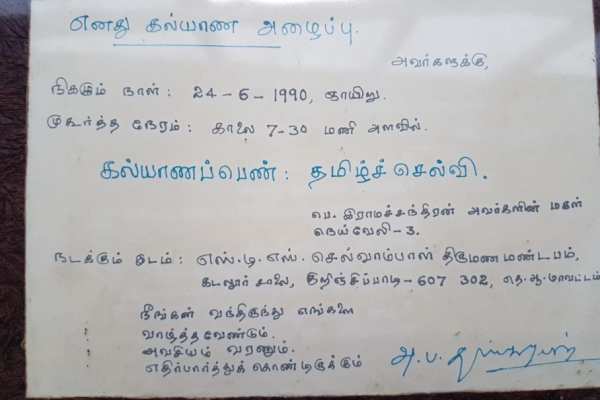 எனது கல்யாண அழைப்பு.
அவர்களுக்கு,
நிகழும் நாள் : 24-6-1990, ஞாயிறு.
முகூர்த்த நேரம் : காலை 7-30 மணி அளவில்.
கல்யாணப்பெண் : தமிழ்ச் செல்வி.
பெ. இராமச்சந்திரன் அவர்களின் மகள்
நெய்வேலி - 3.
நடக்கும் இடம் : எஸ்.டி.எஸ். செல்வாம்பாள் திருமண மண்டபம்,
கடலூர் சாலை, குறிஞ்சிப்பாடி - 607 302, தெ.ஆ.மாவட்டம்
நீங்கள் வந்திருந்து எங்களை
வாழ்த்தவேண்டும்.
அவசியம் வரணும்.
எதிர்பார்த்துக் கொண்டிருக்கும்
அ.ப.